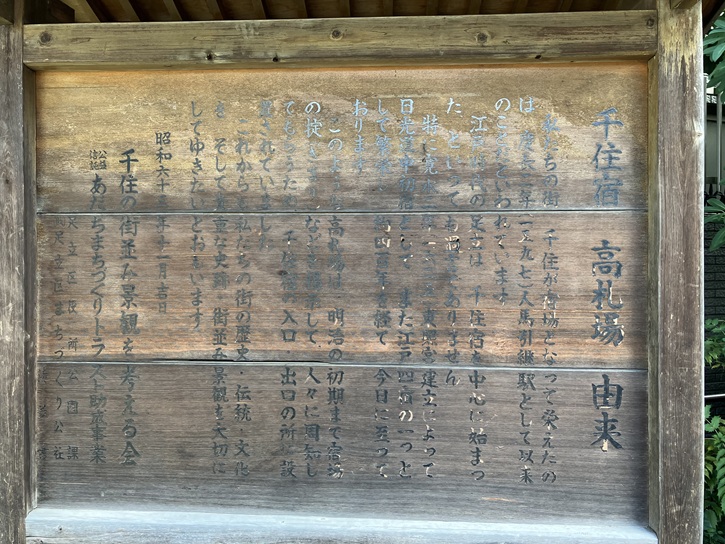 千住宿 高札場 由来
私たちの街 千住が宿場となって栄えたの
は 慶長二年(一五九七)人馬引継駅として以来
のことといわれています
江戸時代の足立は 千住宿を中心に始まっ
た といっても過言でありません
特に寛永二年 東照宮建立によって
日光道中初宿として また江戸四宿の一つと
して 四百年を経て 今日に至って
おります
このような高札場は 明治の初期まで宿場
の掟 などを掲示して 人々に周知し
てもらうため 千住宿の入口 出口の所に設
置されていました
これからも私たちの街の歴史・伝統・文化
を そして貴重な史跡・街並み景観を大切に
してゆきたいとおもいます
昭和六十 年十一月吉日
千住の街並み景観を考える会
公益信託 あだちまちづくりトラスト助成事業
足立区役所公園課
足立区まちづくり公社